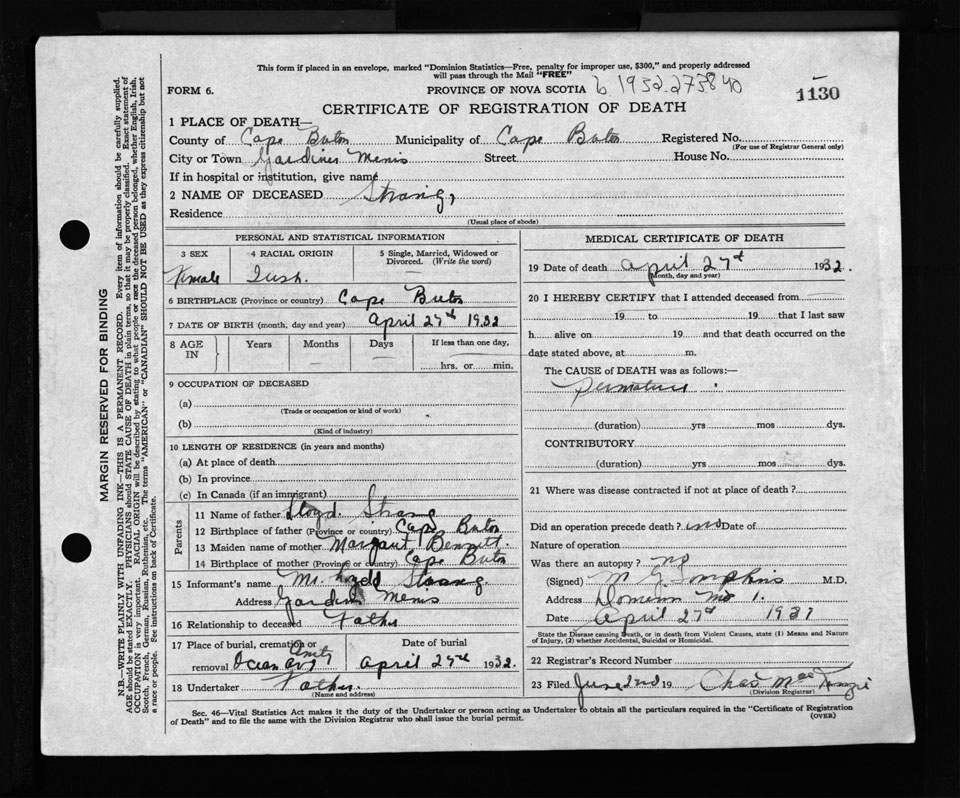 This form if placed in an envelope, marked "Dominion Statistics—Free, penalty for improper use, $300," and properly addressed
will pass through the Mail "FREE"
FORM 6.
PROVINCE OF NOVA SCOTIA
1130
CERTIFICATE OF REGISTRATION OF DEATH
1 PLACE OF DEATH—
County of Cape Breton Municipality of Cape Breton Registered No.
(For use of Registrar General only)
City or Town Gardiner Mines Street House No.
If in hospital or institution, give name
2 NAME OF DECEASED Strang,
Residence
(Usual place of abode)
PERSONAL AND STATISTICAL INFORMATION
3 SEX 4 RACIAL ORIGIN 5 Single, Married, Widowed or Divorced. (Write the word)
Female Irish.
6 BIRTHPLACE (Province or country) Cape Breton
7 DATE OF BIRTH (month, day and year) April 27th 1932
8 AGE IN Years Months Days If less than one day,
hrs. or min.
9 OCCUPATION OF DECEASED
(a)
(Trade or occupation or kind of work)
(b)
(Kind of industry)
10 LENGTH OF RESIDENCE (in years and months)
(a) At place of death
(b) In province
(c) In Canada (if an immigrant)
Parents
11 Name of father Lloyd. Strang
12 Birthplace of father (Province or country) Cape Breton
13 Maiden name of mother Margaret Bennett.
14 Birthplace of mother (Province or country) Cape Breton
15 Informant's name Mr. Lloyd Strang
Address Gardiner Mines
16 Relationship to deceased Father
17 Place of burial, cremation or removal Date of burial
April 27th 1932.
18 Undertaker Father.
(Name and address)
MEDICAL CERTIFICATE OF DEATH
19 Date of death April 27th 1932.
(Month, day and year)
20 I HEREBY CERTIFY that I attended deceased from
19 to 19 that I last saw
h alive on 19 and that death occurred on the
date stated above, at m.
The CAUSE of DEATH was as follows:—
(duration) yrs mos dys.
CONTRIBUTORY
(duration) yrs mos dys.
21 Where was disease contracted if not at place of death?
Did an operation precede death? no Date of
Nature of operation
Was there an autopsy? no
(Signed) M G Tompkins M.D.
Address Dominion No 1.
Date April 27th 1931
State the Disease causing Death, or in death from Violent Causes, state (1) Means and Nature
of Injury, (2) whether Accidental, Suicidal or Homicidal.
22 Registrar's Record Number
23 Filed June 2nd 19 Chas
(Division Registrar)
Sec. 46—Vital Statistics Act makes it the duty of the Undertaker or person acting as Undertaker to obtain all the particulars required in the "Certificate of Registration
of Death" and to file the same with the Division Registrar who shall issue the burial permit.
(OVER)
MARGIN RESERVED FOR BINDING
N.B.—WRITE PLAINLY WITH UNFADING INK—THIS IS A PERMANENT RECORD. Every item of information should be carefully supplied.
AGE should be stated EXACTLY. PHYSICIANS should STATE CAUSE OF DEATH in plain terms, so that it may be properly classified. Exact statement of
OCCUPATION is very important. RACIAL ORIGIN will be described by stating to what people or race the deceased person belonged, whether English, Irish,
Scotch, French, German, Russian, Ruthenian, etc. The terms "AMERICAN" or "CANADIAN" SHOULD NOT BE USED as they express citizenship but not
a race or people. See instructions on back of Certificate.